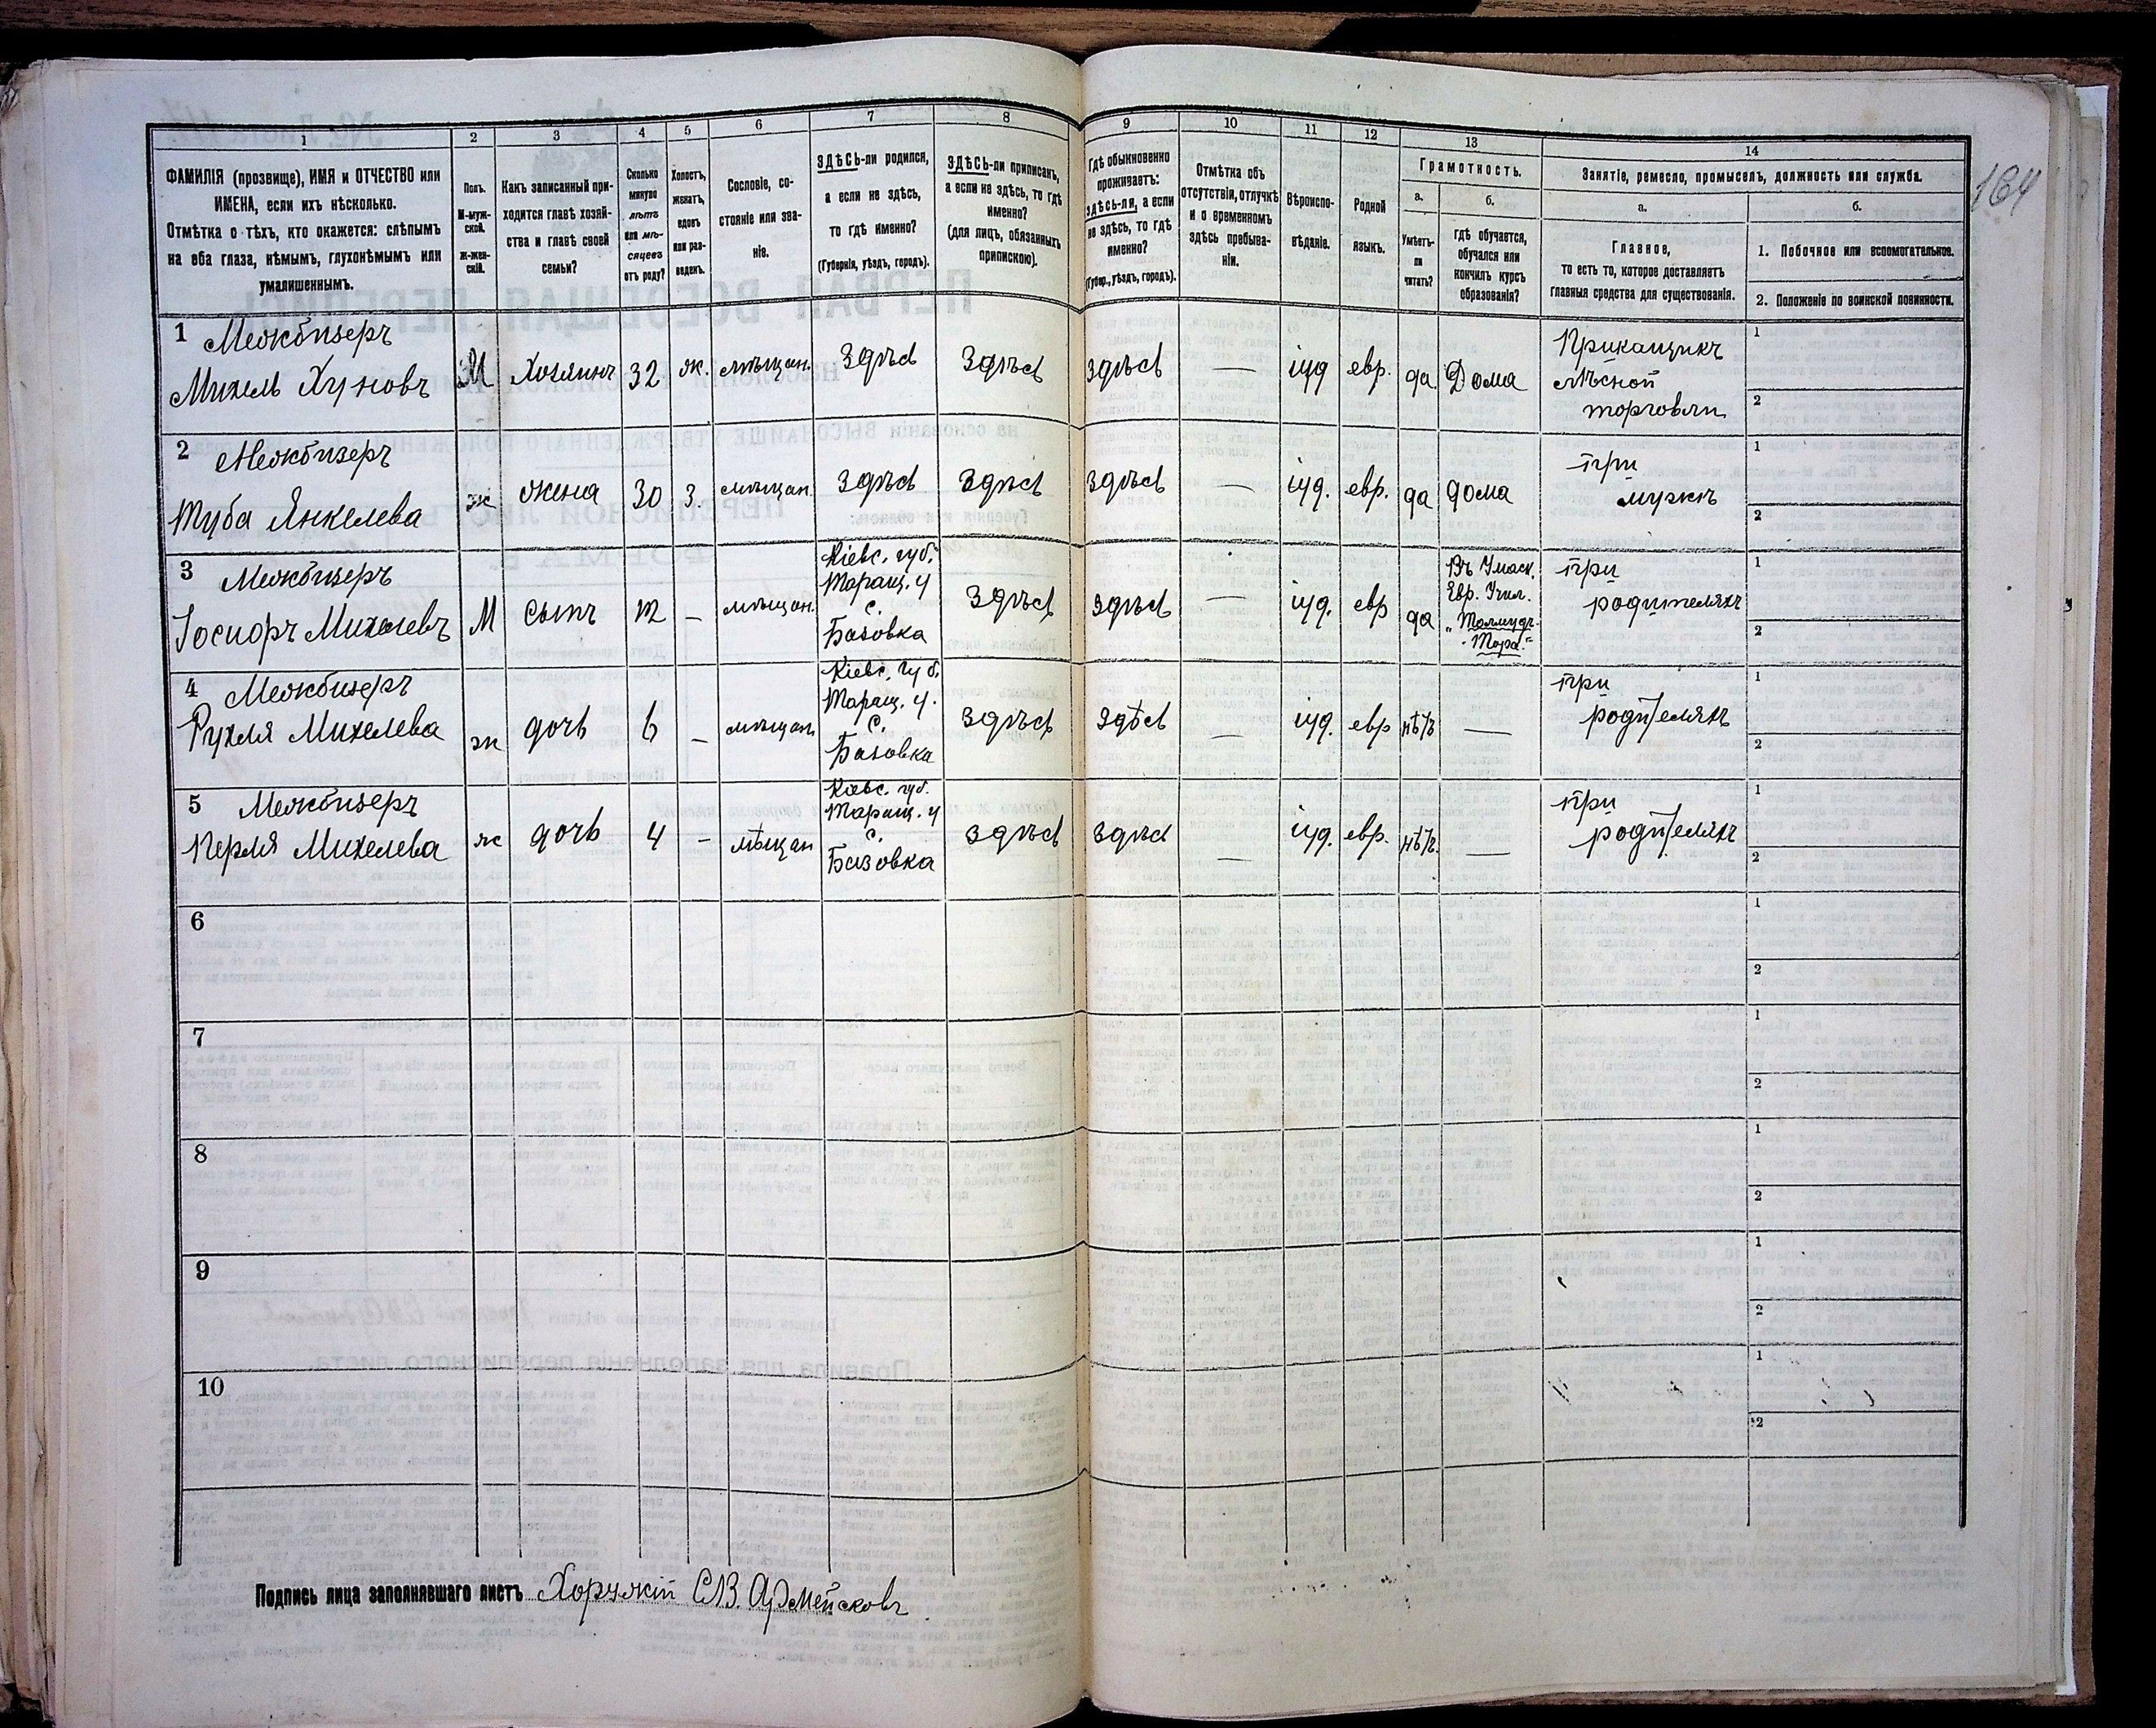 1
2
3
4
5
6
7
8
9
10
11
12
13
14
164
ФАМИЛІЯ (прозвище), ИМЯ и ОТЧЕСТВО или
ИМЕНА, если ихъ нѣсколько.
Отмѣтка о тѣхъ, кто окажется: слѣпымъ
на оба глаза, нѣмымъ, глухонѣмымъ или
умалишеннымъ.
Полъ.
М-муж-
ской.
Ж-жен-
скій.
Какъ записанный при-
ходится главѣ хозяй-
ства и главѣ своей
семьи?
Сколько
минуло
лѣтъ
или мѣ-
сяцевъ
отъ роду?
Холостъ,
женатъ,
вдовъ
или раз-
веденъ.
Сословіе, со-
стояніе или зва-
ніе.
ЗДѢСЬ-ли родился,
а если не здѣсь,
то гдѣ именно?
(Губернія, уѣздъ, городъ).
ЗДѢСЬ-ли приписанъ,
а если не здѣсь, то гдѣ
именно?
(для лицъ, обязанныхъ
припискою).
Гдѣ обыкновенно
проживаетъ:
здѣсь-ли, а если
не здѣсь, то гдѣ
именно?
(Губер., уѣздъ, городъ).
Отмѣтка объ
отсутствіи, отлучкѣ
и о временномъ
здѣсь пребыва-
ніи.
Вѣроиспо-
вѣданіе.
Родной
языкъ.
Грамотность.
а.
Умѣетъ-
ли
читать?
б.
гдѣ обучается,
обучался или
кончилъ курсъ
образованія?
Занятіе, ремесло, промыселъ, должность или служба.
а.
Главное,
то есть то, которое доставляетъ
главныя средства для существованія.
б.
1. Побочное или вспомогательное.
2. Положеніе по воинской повинности.
1 Межбизеръ
Михель Хуновъ
М
Хозяинъ
32
ж.
мѣщан.
Здѣсь
Здѣсь
Здѣсь
—
іуд
евр.
да
Дома
Прикащикъ
лѣсной
торговли
1
2
2 Межбизеръ
Туба Янкелева
ж
жена
30
з.
мѣщан.
Здѣсь
Здѣсь
Здѣсь
—
іуд.
евр.
да
дома
при
мужѣ
1
2
3 Межбизеръ
Іосифъ Михелевъ
М
сынъ
12
–
мѣщан.
Кіевс. губ.
Таращ. у
с.
Базовка
Здѣсь
Здѣсь
—
іуд.
евр
да
Въ Уман.
Евр. Учил.
"Талмудъ-
-Тора."
при
родителяхъ
1
2
4 Межбизеръ
Рухля Михелева
ж
дочь
6
–
мѣщан
Кіевс. губ.
Таращ. у.
с.
Базовка
Здѣсь
Здѣсь
—
іуд.
евр
нѣтъ
—
при
родителяхъ
1
2
5 Межбизеръ
Перля Михелева
ж
дочь
4
–
мѣщан
Кіевс. губ.
Таращ. у
с.
Базовка
Здѣсь
Здѣсь
—
іуд.
евр.
нѣтъ.
—
при
родителяхъ
1
2
6
1
2
7
1
2
8
1
2
9
1
2
10
1
2
Подпись лица заполнявшаго листъ Хорунжій С.В. Армейсковъ